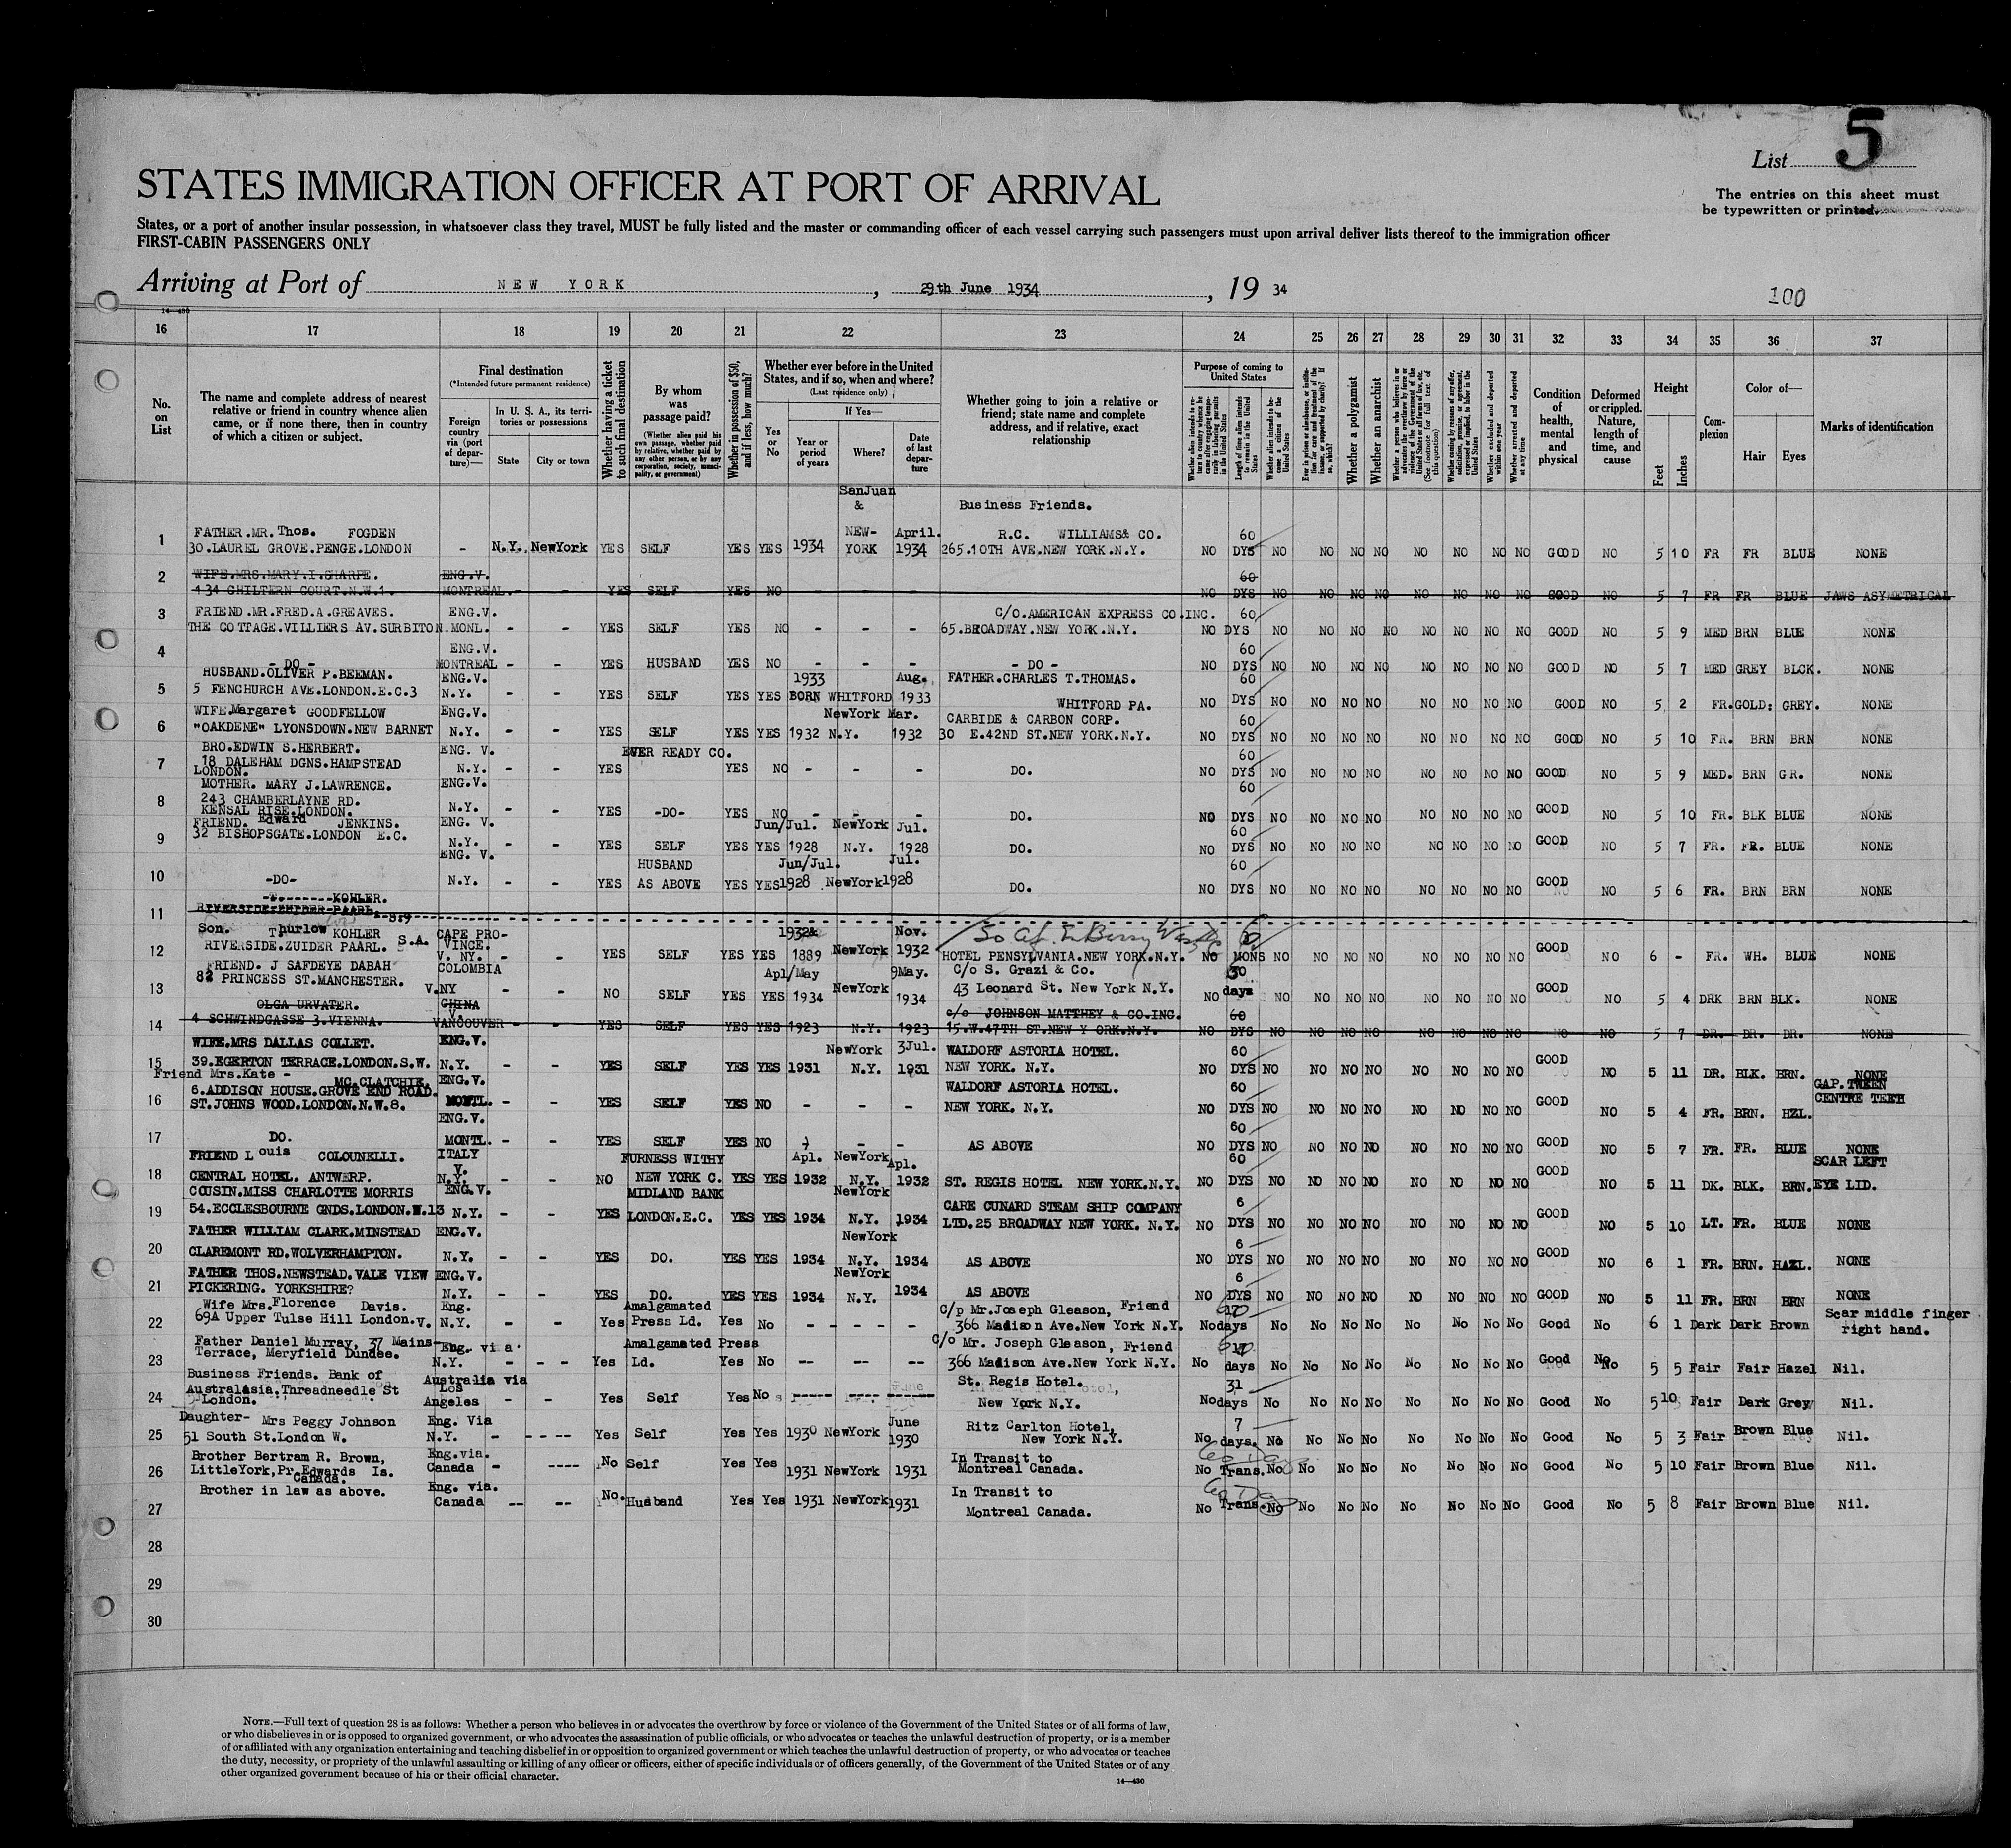 5
List
STATES IMMIGRATION OFFICER AT PORT OF ARRIVAL
The entries on this sheet must
be typewritten or printed.
States, or a port of another insular possession, in whatsoever class they travel, MUST be fully listed and the master or commanding officer of each vessel carrying such passengers must upon arrival deliver lists thereof to the immigration officer
FIRST-CABIN PASSENGERS ONLY
Arriving at Port of NEW YORK, 29th June 1934, 19 34
100
14-430
16 17 18 19 20 21 22 23 24 25 26 27 28 29 30 31 32 33 34 35 36 37
No. on List
The name and complete address of nearest relative or friend in country whence alien came, or if none there, then in country of which a citizen or subject.
Final destination
(*Intended future permanent residence)
Foreign country via (port of departure)—
In U. S. A., its territories or possessions
State
City or town
Whether having a ticket to such final destination
By whom was passage paid?
(Whether alien paid his own passage, whether paid by relative, whether paid by any other person, or by any corporation, society, municipality, or government)
Whether in possession of $50, and if less, how much?
Whether ever before in the United States, and if so, when and where?
(Last residence only)
Yes or No
If Yes—
Year or period of years
Where?
Date of last departure
Whether going to join a relative or friend; state name and complete address, and if relative, exact relationship
Purpose of coming to United States
Whether alien intends to return to country whence he came after engaging temporarily in laboring pursuits in the United States
Length of time alien intends to remain in the United States
Whether alien intends to become a citizen of the United States
Ever in prison or almshouse, or institution for care and treatment of the insane, or supported by charity? If so, which?
Whether a polygamist
Whether an anarchist
Whether a person who believes in or advocates the overthrow by force or violence of the Government of the United States or all forms of law, etc. (See footnote for full text of this question)
Whether coming by reasons of any offer, solicitation, promise, or agreement, expressed or implied, to labor in the United States
Whether excluded and deported within one year
Whether arrested and deported at any time
Condition of health, mental and physical
Deformed or crippled. Nature, length of time, and cause
Height
Feet
Inches
Complexion
Color of—
Hair
Eyes
Marks of identification
SanJuan
& Business Friends.
FATHER.MR.Thos. FOGDEN NEW- April. R.C. WILLIAMS& CO. 60
1 30.LAUREL GROVE.PENGE.LONDON - N.Y. NewYork YES SELF YES YES 1934 YORK 1934 265.10TH AVE.NEW YORK.N.Y. NO DYS NO NO NO NO NO NO NO NO GOOD NO 5 10 FR FR BLUE NONE
2 WIFE.MRS.MARY.I.SHARPE. ENG.V. 60
134 CHILTERN COURT.N.W.1. MONTREAL. - - YES SELF YES NO NO DYS NO NO NO NO NO NO NO GOOD NO 5 7 FR FR BLUE JAWS ASYMETRICAL
3 FRIEND.MR.FRED.A.GREAVES. ENG.V. C/O.AMERICAN EXPRESS CO.INC. 60
THE COTTAGE.VILLIERS AV.SURBITON. MONL. - - YES SELF YES NO - - - 65.BROADWAY.NEW YORK.N.Y. NO DYS NO NO NO NO NO NO NO NO GOOD NO 5 9 MED BRN BLUE NONE
4 ENG.V. 60
- DO - MONTREAL - - YES HUSBAND YES NO - - - - DO - NO DYS NO NO NO NO NO NO NO NO GOOD NO 5 7 MED GREY BLCK. NONE
HUSBAND.OLIVER P.BEEMAN. ENG.V. 1933 Aug. FATHER.CHARLES T.THOMAS. 60
5 5 FENCHURCH AVE.LONDON.E.C.3 N.Y. - - YES SELF YES YES BORN WHITFORD 1933 WHITFORD PA. NO DYS NO NO NO NO NO NO NO NO GOOD NO 5 2 FR. GOLD: GREY. NONE
WIFE.Margaret GOODFELLOW ENG.V. NewYork Mar. CARBIDE & CARBON CORP. 60
6 "OAKDENE" LYONSDOWN.NEW BARNET N.Y. - - YES SELF YES YES 1932 N.Y. 1932 30 E.42ND ST.NEW YORK.N.Y. NO DYS NO NO NO NO NO NO NO NO GOOD NO 5 10 FR. BRN BRN NONE
BRO.EDWIN S.HERBERT. ENG. V. EVER READY CO. 60
7 18 DALEHAM DGNS.HAMPSTEAD LONDON. N.Y. - - YES YES NO - - - DO. NO DYS NO NO NO NO NO NO NO NO GOOD NO 5 9 MED. BRN GR. NONE
MOTHER. MARY J.LAWRENCE. ENG.V. 60
8 243 CHAMBERLAYNE RD.
KENSAL RISE.LONDON. N.Y. - - YES -DO- YES NO - - - DO. NO DYS NO NO NO NO NO NO NO NO GOOD NO 5 10 FR. BLK BLUE NONE
FRIEND. Edward JENKINS. ENG. V. Jun/Jul. NewYork Jul. 60
9 32 BISHOPSGATE.LONDON E.C. N.Y. - - YES SELF YES YES 1928 N.Y. 1928 DO. NO DYS NO NO NO NO NO NO NO NO GOOD NO 5 7 FR. FR. BLUE NONE
ENG. V. HUSBAND Jun/Jul. Jul. 60
10 -DO- N.Y. - - YES AS ABOVE YES YES 1928 NewYork 1928 DO. NO DYS NO NO NO NO NO NO NO NO GOOD NO 5 6 FR. BRN BRN NONE
KOHLER.
11 RIVERSIDE ZUIDER PAARL.
Son. Thurlow KOHLER CAPE PRO- 1932& Nov. 6
12 RIVERSIDE.ZUIDER PAARL. S.A. VINCE. V. NY. YES SELF YES YES 1889 NewYork 1932 HOTEL PENSYLVANIA.NEW YORK.N.Y. NO MONS NO NO NO NO NO NO NO NO GOOD NO 6 - FR. WH. BLUE NONE
FRIEND. J SAFDEYE DABAH COLOMBIA Apl/May 9May. C/o S. Grazi & Co. 30
13 82 PRINCESS ST.MANCHESTER. V.NY - - NO SELF YES YES 1934 NewYork 1934 43 Leonard St. New York N.Y. NO days NO NO NO NO NO NO NO NO GOOD NO 5 4 DRK BRN BLK. NONE
OLGA URVATER. CHINA V. c/o JOHNSON MATTHEY & CO.INC. 60
14 4 SCHWINDGASSE 3.VIENNA. VANCOUVER - - YES SELF YES YES 1923 N.Y. 1923 15.W.47TH ST.NEW YORK.N.Y. NO DYS NO NO NO NO NO NO NO NO NO NO 5 7 DR. DR. DR. NONE
WIFE.MRS DALLAS COLLET. ENG.V. NewYork 3Jul. WALDORF ASTORIA HOTEL. 60
15 39.EGERTON TERRACE.LONDON.S.W. N.Y. - - YES SELF YES YES 1931 N.Y. 1931 NEW YORK. N.Y. NO DYS NO NO NO NO NO NO NO NO GOOD NO 5 11 DR. BLK. BRN. NONE
Friend Mrs.Kate - MC.CLATCHIE. ENG.V. WALDORF ASTORIA HOTEL. 60 GAP.TWEEN
6.ADDISON HOUSE.GROVE END ROAD. CENTRE TEETH
16 ST.JOHNS WOOD.LONDON.N.W.8. MONTL. - - YES SELF YES NO - - - NEW YORK. N.Y. NO DYS NO NO NO NO NO NO NO NO GOOD NO 5 4 FR. BRN. HZL.
ENG.V. 60
17 DO. MONTL. - - YES SELF YES NO - - - AS ABOVE NO DYS NO NO NO NO NO NO NO NO GOOD NO 5 7 FR. FR. BLUE NONE
FRIEND Louis COLOUNELLI. ITALY V. FURNESS WITHY Apl. NewYork Apl. 60 SCAR LEFT
18 CENTRAL HOTEL. ANTWERP. N.Y. - - NO NEW YORK C. YES YES 1932 N.Y. 1932 ST. REGIS HOTEL NEW YORK.N.Y. NO DYS NO NO NO NO NO NO NO NO GOOD NO 5 11 DK. BLK. BRN. EYE LID.
COUSIN.MISS CHARLOTTE MORRIS ENG.V. MIDLAND BANK NewYork CARE CUNARD STEAM SHIP COMPANY 6
19 54.ECCLESBOURNE GNDS.LONDON.W.13 N.Y. - - YES LONDON.E.C. YES YES 1934 N.Y. 1934 LTD.25 BROADWAY NEW YORK. N.Y. NO DYS NO NO NO NO NO NO NO NO GOOD NO 5 10 LT. FR. BLUE NONE
FATHER WILLIAM CLARK.MINSTEAD ENG.V. NewYork 6
20 CLAREMONT RD.WOLVERHAMPTON. N.Y. - - YES DO. YES YES 1934 N.Y. 1934 AS ABOVE NO DYS NO NO NO NO NO NO NO NO GOOD NO 6 1 FR. BRN. HAZL. NONE
FATHER THOS.NEWSTEAD.VALE VIEW ENG.V. NewYork 6
21 PICKERING. YORKSHIRE? N.Y. - - YES DO. YES YES 1934 N.Y. 1934 AS ABOVE NO DYS NO NO NO NO NO NO NO NO GOOD NO 5 11 FR. BRN BRN NONE
Wife Mrs.Florence Davis. Eng. Amalgamated C/p Mr.Joseph Gleason, Friend 60 Scar middle finger
22 69A Upper Tulse Hill London. v. N.Y. - - Yes Press Ld. Yes No - - - - 366 Madison Ave.New York N.Y. No days No No No No No No No No Good No 6 1 Dark Dark Brown right hand.
Father Daniel Murray, 37 Mains- Eng. via Amalgamated Press C/o Mr. Joseph Gleason, Friend 60
23 Terrace, Meryfield Dundee. N.Y. - - - Yes Ld. Yes No -- -- -- 366 Madison Ave.New York N.Y. No days No No No No No No No No Good No 5 5 Fair Fair Hazel Nil.
Business Friends. Bank of Australia via St. Regis Hotel. 31
24 Australasia.Threadneedle St London. Los Angeles - - Yes Self Yes No New York N.Y. No days No No No No No No No No Good No 5 10 Fair Dark Grey Nil.
Daughter- Mrs Peggy Johnson Eng. Via June Ritz Carlton Hotel, 7
25 51 South St.London W. N.Y. - ---- Yes Self Yes Yes 1930 NewYork 1930 New York N.Y. No days. No No No No No No No No Good No 5 3 Fair Brown Blue Nil.
Brother Bertram R. Brown, Eng.via. In Transit to 60 Days
26 LittleYork,Pr.Edwards Is. Canada. Canada - ---- No Self Yes Yes 1931 NewYork 1931 Montreal Canada. No Trans. No No No No No No No No Good No 5 10 Fair Brown Blue Nil.
Brother in law as above. Eng. via. In Transit to 60 Dys
27 Canada -- -- No. Husband Yes Yes 1931 NewYork 1931 Montreal Canada. No Trans. No No No No No No No No Good No 5 8 Fair Brown Blue Nil.
28
29
30
NOTE.—Full text of question 28 is as follows: Whether a person who believes in or advocates the overthrow by force or violence of the Government of the United States or of all forms of law,
or who disbelieves in or is opposed to organized government, or who advocates the assassination of public officials, or who advocates or teaches the unlawful destruction of property, or is a member
of or affiliated with any organization entertaining and teaching disbelief in or opposition to organized government or which teaches the unlawful destruction of property, or who advocates or teaches
the duty, necessity, or propriety of the unlawful assaulting or killing of any officer or officers, either of specific individuals or of officers generally, of the Government of the United States or of any
other organized government because of his or their official character.
14-430